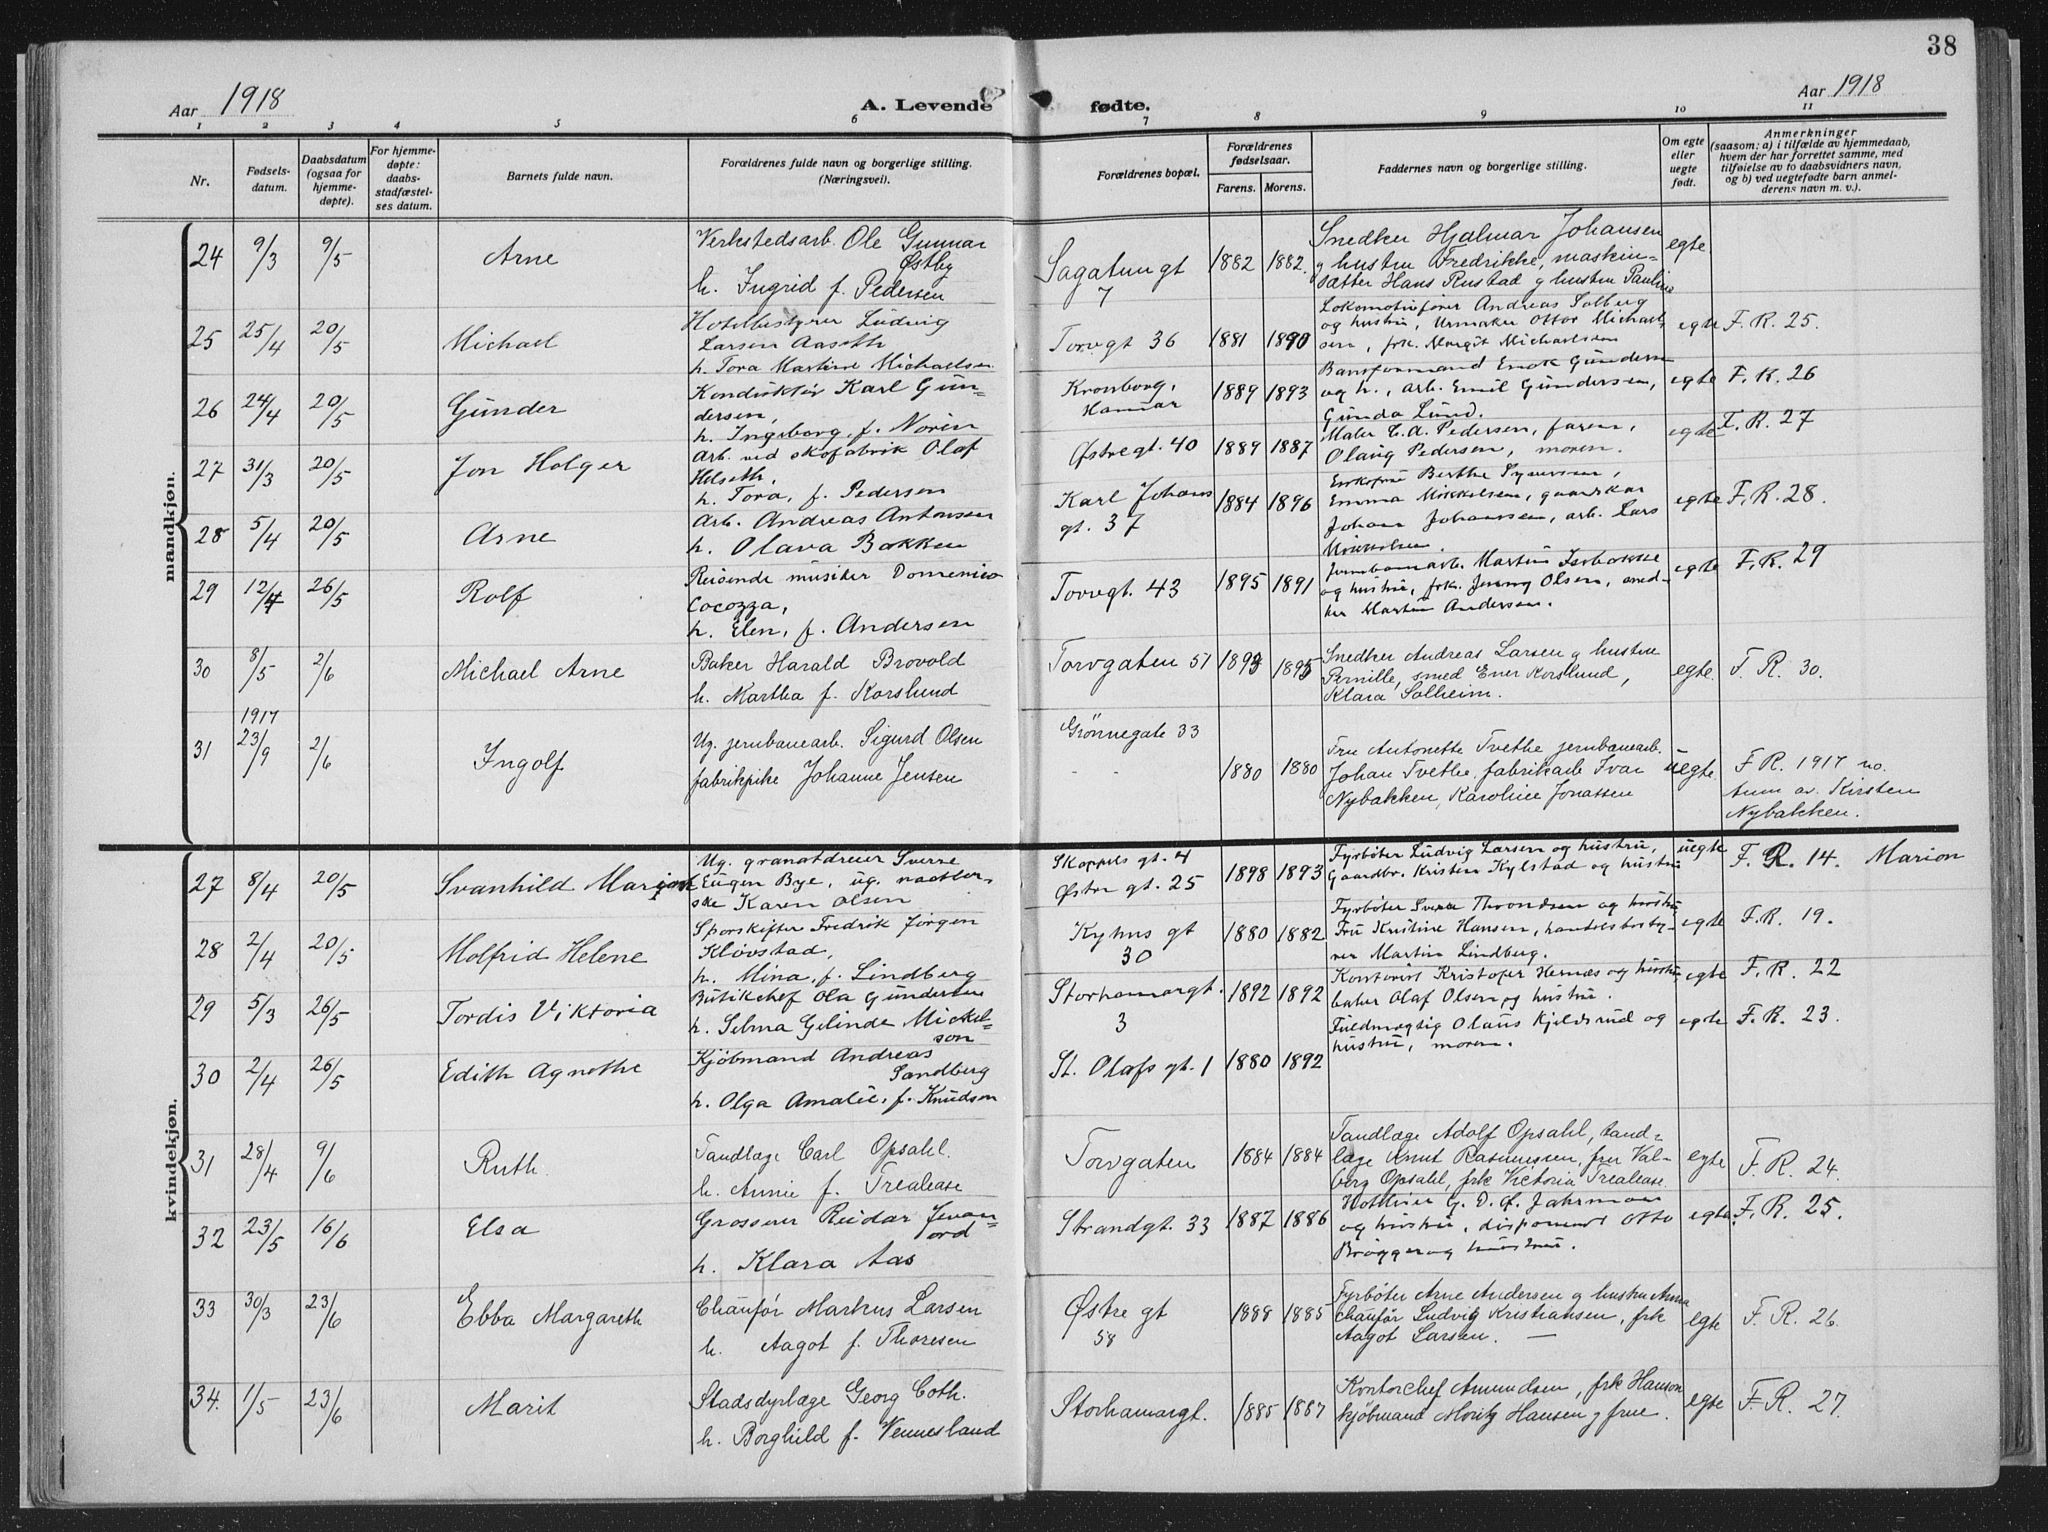 38
Aar 1918
A. Levende fødte.
Aar 1918
1 2 3 4 5 6 7 8 9 10 11
Nr.
Fødsels-
datum.
Daabsdatum
(ogsaa for
hjemme-
døpte).
For hjemme-
døpte:
daabs-
stadfæstel-
ses datum.
Barnets fulde navn.
Forældrenes fulde navn og borgerlige stilling.
(Næringsvei).
Forældrenes bopæl.
Forældrenes
fødselsaar.
Farens. Morens.
Faddernes navn og borgerlige stilling.
Om egte
eller
uegte
født.
Anmerkninger
(saasom: a) i tilfælde av hjemmedaab,
hvem der har forrettet samme, med
tilføielse av to daabsvidners navn,
og b) ved uegtefødte barn anmel-
derens navn m. v.).
mandkjøn.
24 9/3 9/5 Arne
Verkstedsarb. Ole Gunnar
Østby
h. Ingrid f. Pedersen
Sagatungt
7
1882 1882.
Snedker Hjalmar Johansen
g hustru Fredrikke, maskin-
sætter Hans Rustad g hustru Pauline
egte.
25 25/4 20/5 Michael
Hotelbestyrer Ludvig
Larsen Aaseth
h. Tora Martine Michaelsen
Torvgt 36
1881 1890
Lokomotivfører Andreas Solberg
og hustru, Urmaker Ottor Michael-
sen, frk. Margit Michaelsen
egte F. R. 25.
26 24/4 20/5 Gunder
Konduktør Karl Gun-
dersen,
h. Ingeborg, f. Norén
Kronborg,
Hamar
1889 1893
Banformand Enok Gundersen
og h., arb. Emil Gundersen,
Gunda Lund.
egte F. R. 26
27 31/3 20/5 Jon Holger
Arb. ved skofabrik Olaf
Helseth,
h. Tora, f. Pedersen
Østregt. 40
1889 1887
Maler C. A. Pedersen, faren,
Olaug Pedersen, moren.
egte F. R. 27
28 5/4 20/5 Arne
Arb. Andreas Antonsen
h. Olava Bakken
Karl Johans
gt. 37
1884 1896
Enkefru Berthe Syversen,
Emma Mikkelsen, gaardskar
Johan Johansen, arb. Lars
Mikkelsen.
egte F. R. 28.
29 12/4 26/5 Rolf
Reisende musiker Domenico
Cocozza,
h. Elen, f. Andersen
Torvgt. 43
1895 1891
Jernbanarb. Martin Isbakke
og hustru, frk. Jenny Olsen, sned-
ker Martin Andersen.
egte F. R. 29
30 8/5 2/6 Michael Arne
Baker Harald Brovold
h. Martha f. Korslund
Torvgaten 51
1893 1895
Snedker Andreas Larsen g hustru
Pernille, smed Ener Korslund,
Klara Solheim.
egte. F. R. 30.
31 1917
23/9 2/6 Ingolf
Ug. jernbanearb. Sigurd Olsen
fabrikpike Johanne Jensen
Grønnegate 33
1880 1880
Fru Antonette Tvethe jernbanearb.
Johan Tvethe, fabrikarb Ivar
Nybakken, Karoline Jonassen
uegte
F. R. 1917 no.
Anm. av. Kirsten
Nybakken.
kvindekjøn.
27 8/4 20/5 Svanhild Marion
Ug. granatdreier Sverre
Eugen Bye, ug.
ske Karen Olsen
Skappels gt. 4
Østre gt. 25
1898 1893
Fyrbøter Ludvig Larsen og hustru,
Gaardbr. Kristen Kylstad og hustru
uegte F. R. 14. Marion
28 2/4 20/5 Molfrid Helene
Sporskifter Fredrik Jørgen
Kløvstad,
h. Mina, f. Lindberg
Kyhns gt
30
1880 1882
Fyrbøter Sverre Throndsen og hustru
Fru Kristine Hansen, handelsbesty-
rer Martin Lindberg.
egte F. R. 19.
29 5/3 26/5 Tordis Viktoria
Butikchef Ola Gundersen
h. Selma Gelinde Mickel-
son
Storhamargt.
3
1892 1892
Kontorist Kristofer Hernæs og hustru,
baker Olaf Olsen og hustru.
egte F. R. 22
30 2/4 26/5 Edith Agnethe
Kjøbmand Andreas
Sandberg
h. Olga Amalie, f. Knudson
St. Olafs gt. 1
1880 1892
Fuldmægtig Olaus Kjeldsrud og
hustru, moren.
egte F. R. 23.
31 28/4 9/6 Ruth.
Tandlæge Carl Opsahl.
h. Annie f. Trealease
Torvgaten
1884 1884
Tandlæge Adolf Opsahl, tand-
læge Knut Rasmussen, fru Val-
berg Opsahl, frk Victoria Trealease.
egte F. R. 24.
32 23/5 16/6 Elsa
Grosserer Reidar Jevan-
ord
h. Klara Aas
Strandgt. 33
1887 1886
Hotteier G. D. f. Jahrman
og hustru, disponent Otto
Brøgger og hustru.
egte F. R. 25.
33 30/3 23/6 Ebba Margareth
Chauför Markus Larsen
h. Aagot f. Thoresen
Østre gt
58
1888 1885
Fyrbøter Arne Andersen g hustru Anna
chauför Ludvig Kristiansen, frk
Aagot Larsen. —
egte F. R. 26.
34. 1/5 23/6 Marit
Stadsdyrlæge Georg Coth.
h. Borghild f. Vennesland
Storhamargt.
1885 1887
Kontorchef Amundsen, frk Hanson
kjøbmand Moritz Hansen g frue.
egte F. R. 27.